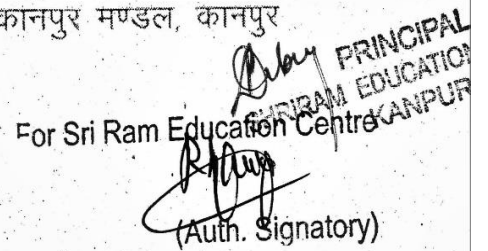 कानपुर मण्डल, कानपुर
PRINCIPAL
SHRIRAM EDUCATION
KANPUR
For Sri Ram Education Centre
(Auth. Signatory)